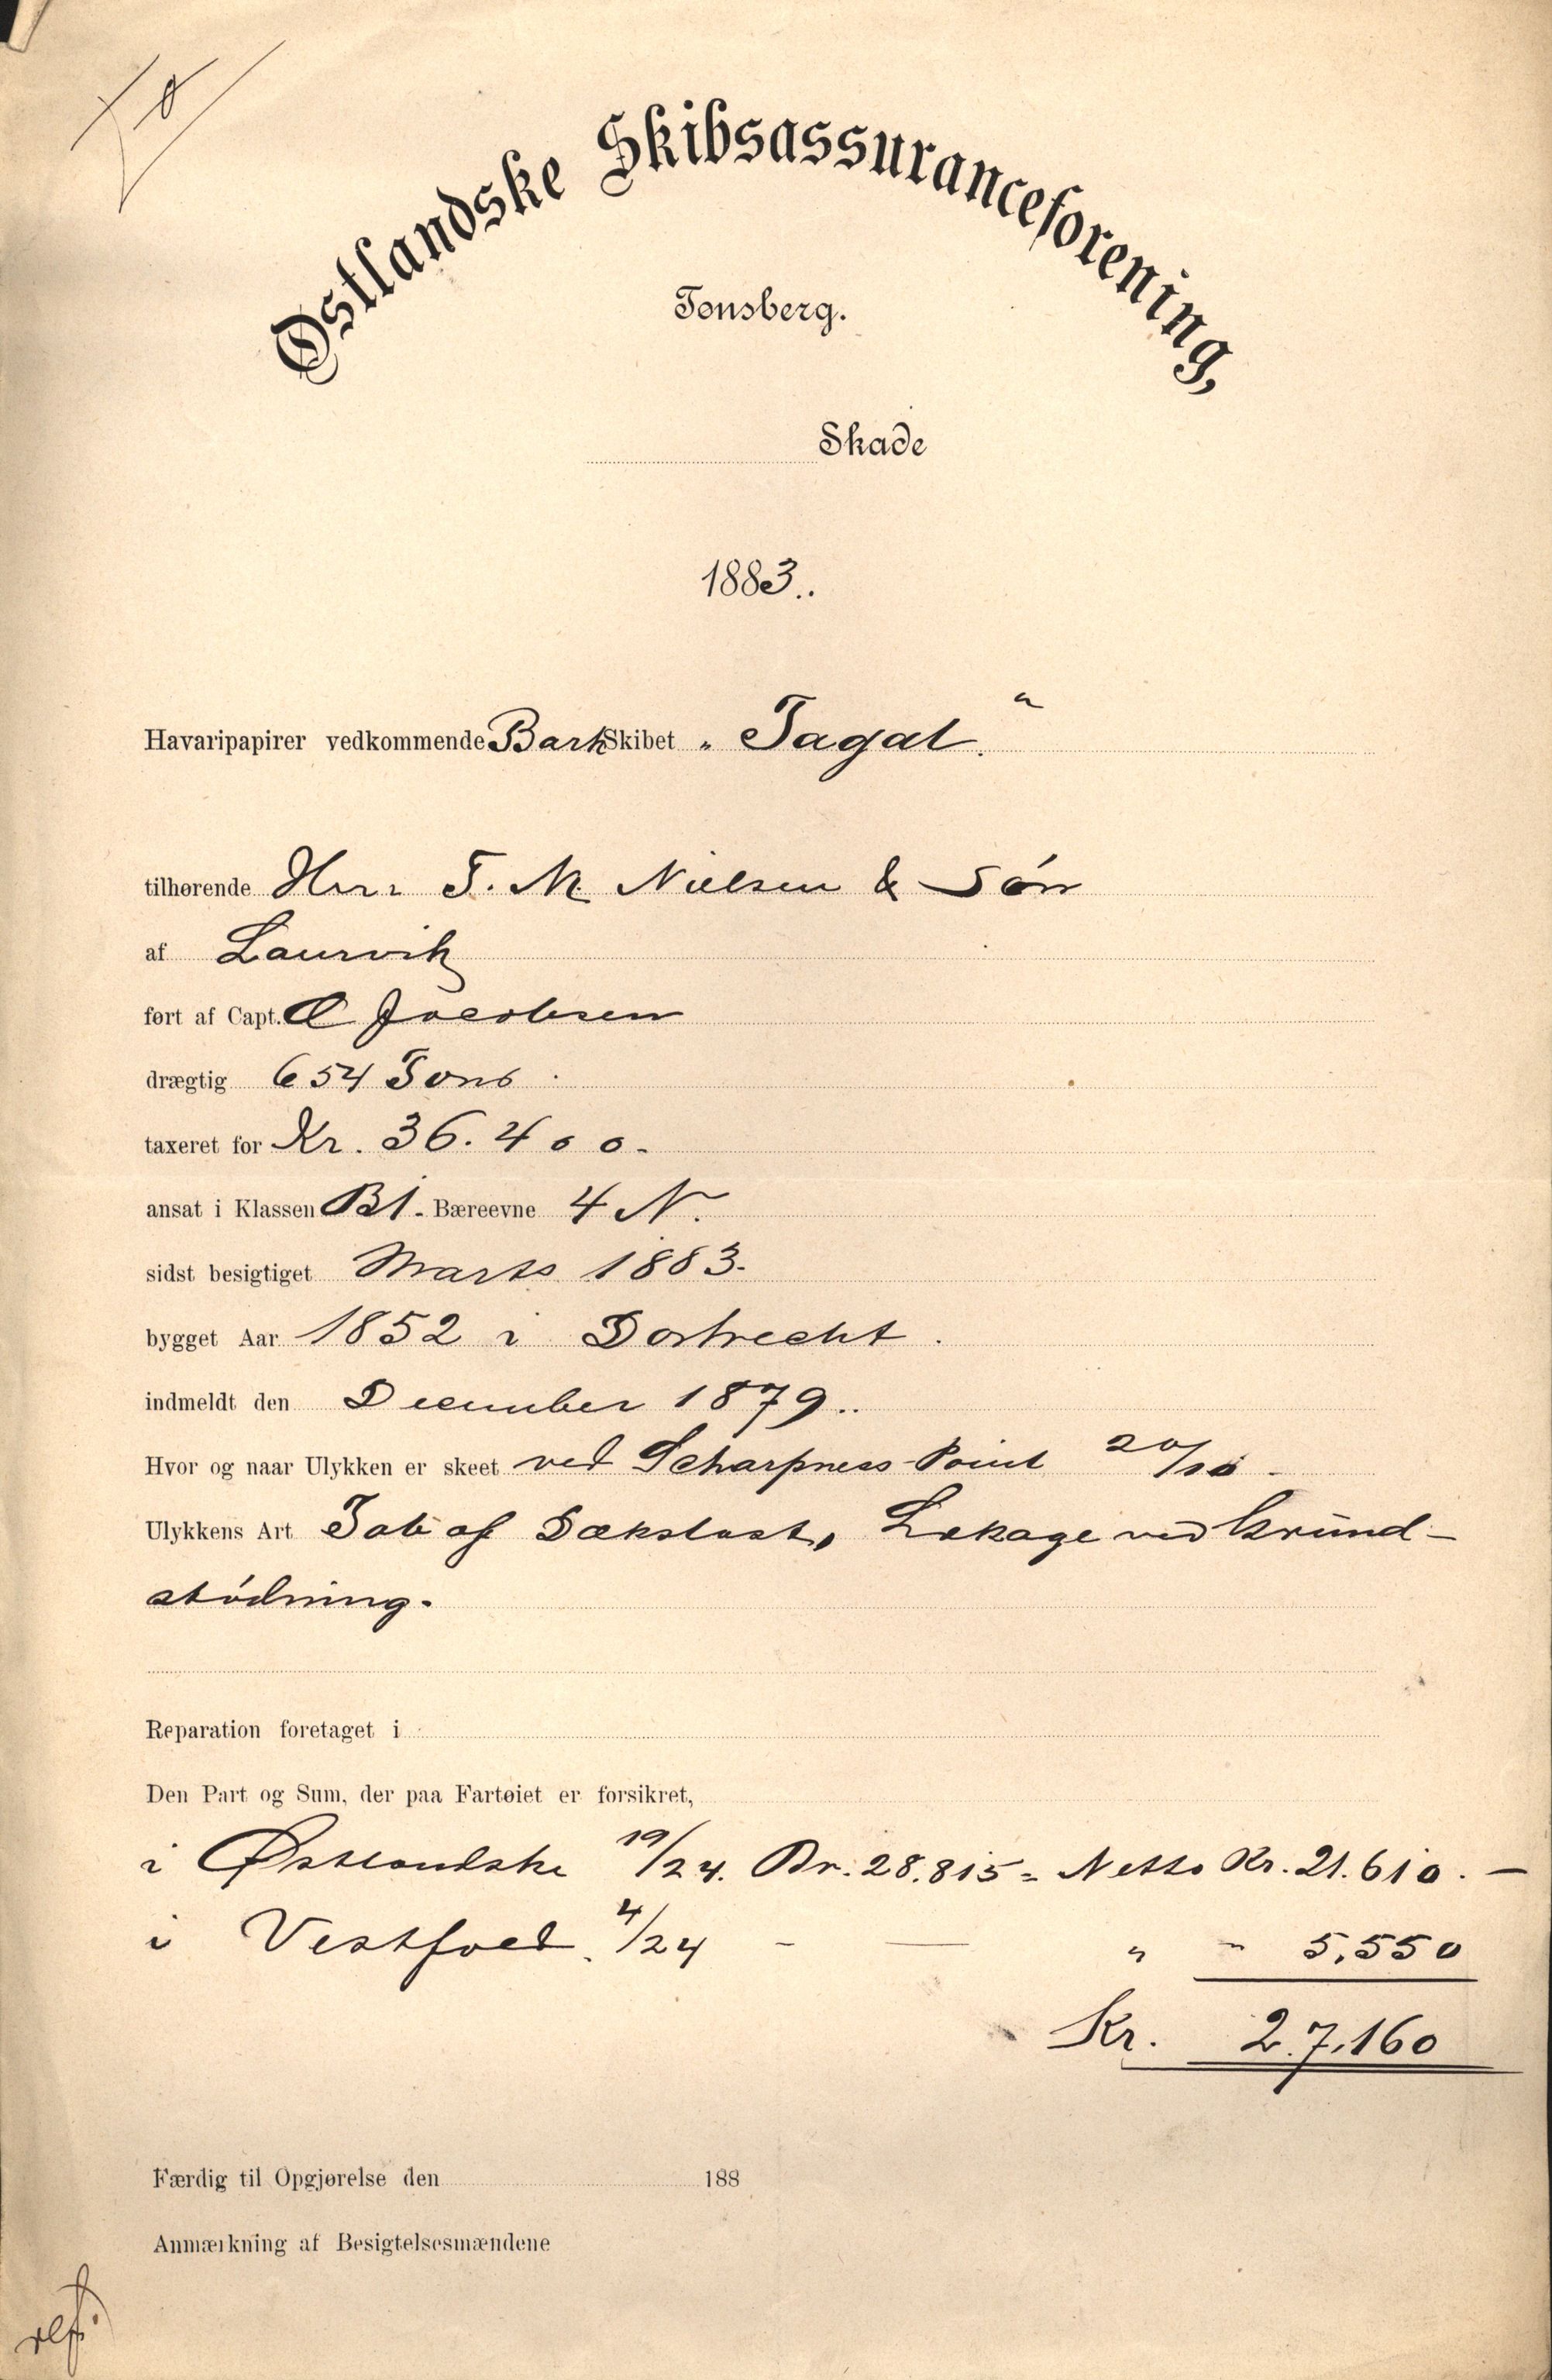 Østlandske Skibsassuranceforening,
Tønsberg.
Skade
1883..
Havaripapirer vedkommende Bark Skibet „ Tagal. “
tilhørende Herr T. M. Nielsen & Søn
af Laurvik
ført af Capt. O Jacobsen
drægtig 654 Tons
taxeret for Kr. 36.400.
ansat i Klassen B1. Bæreevne 4 N.
sidst besigtiget Marts 1883.
bygget Aar 1852 i Dortrecht.
indmeldt den December 1879..
Hvor og naar Ulykken er skeet ved Scharpness Point 20/10.
Ulykkens Art Tab af Dækslast, Lækage ved Grund-
stødning.
Reparation foretaget i
Den Part og Sum, der paa Fartøiet er forsikret,
i Østlandske 19/24. Br. 28.815 = Netto Kr. 21.610. —
i Vestfold. 4/24 - — " - 5,550
Kr. 27,160
Færdig til Opgjørelse den 188
Anmærkning af Besigtelsesmændene